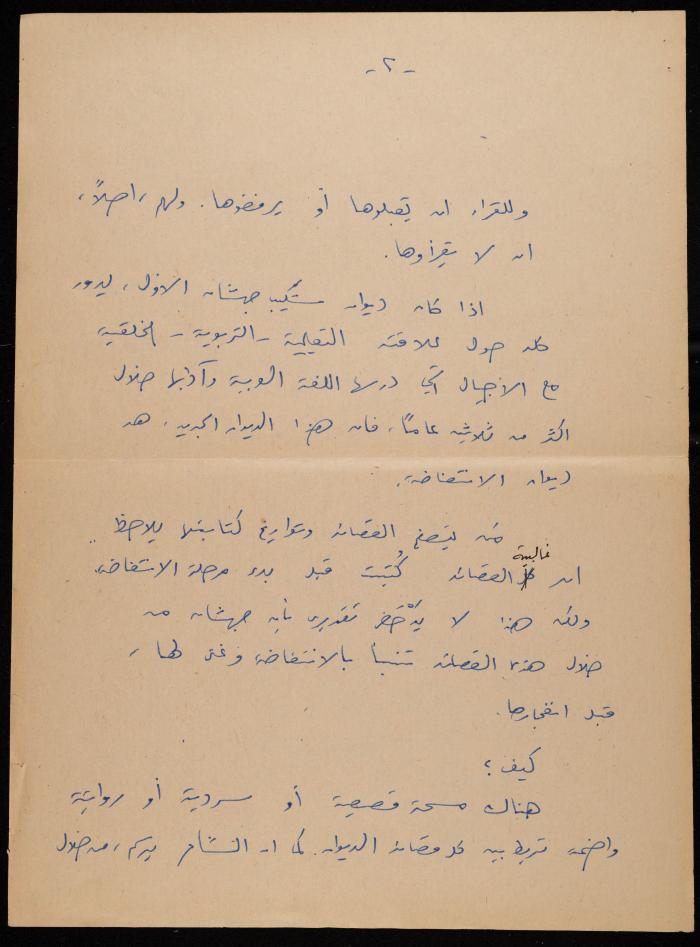 - ٢ -
وللقراء ان يقبلوها أو يرفضوها. ولهم، اصلاً،
ان لا يقرأوها.
اذا كان ديوان شكيب جهشان الاول، يدور
كله حول علاقته التعليمية - التربوية - الخلقية
مع الاجيال التي درسها اللغة العربية وآدابها خلال
اكثر من ثلاثين عاماً، فان هذا الديوان الجديد، هو
ديوان الانتفاضة.
من يتصفح القصائد وتواريخ كتابتها يلاحظ
ان غالبية القصائد كُتبت قبل بدء مرحلة الانتفاضة.
ولكن هذا لا يدحض تقديري بأن جهشان من
خلال هذه القصائد تنبأ بالانتفاضة وغنى لها،
قبل انفجارها.
كيف؟
هناك مسحة قصصية أو سردية أو روائية
واضحة تربط بين كل قصائد الديوان. كما ان الشاعر يرسم، من خلال